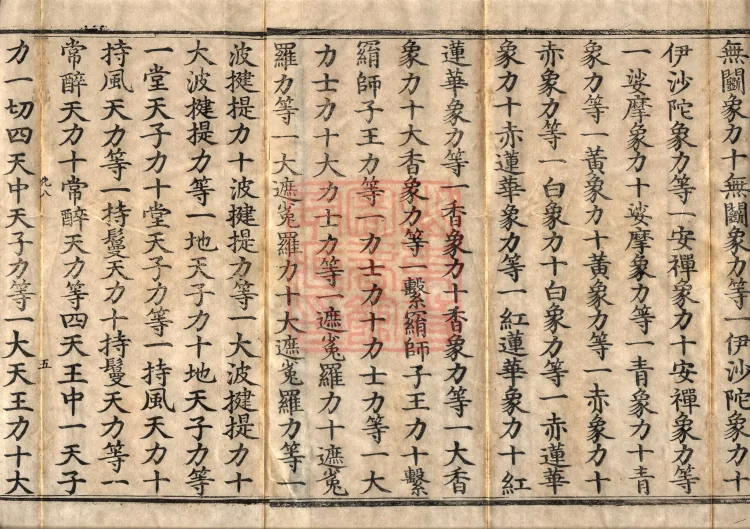 無鬬象力十無鬬象力等一伊沙陀象力十
伊沙陀象力等一安禪象力十安禪象力等
一娑摩象力十娑摩象力等一青象力十青
象力等一黃象力十黃象力等一赤象力十
赤象力等一白象力十白象力等一赤蓮華
象力十赤蓮華象力等一紅蓮華象力十紅
蓮華象力等一香象力十香象力等一大香
象力十大香象力等一繫羂師子王力十繫
羂師子王力等一力士力十力士力等一大
力士力十大力士力等一遮㝹羅力十遮㝹
羅力等一大遮㝹羅力十大遮㝹羅力等一
波揵提力十波揵提力等一大波揵提力十
大波揵提力等一地天子力十地天子力等
一堂天子力十堂天子力等一持風天力十
持風天力等一持鬘天力十持鬘天力等一
常醉天力十常醉天力等四天王中一天子
九八
五
力一切四天中天子力等一大天王力十大